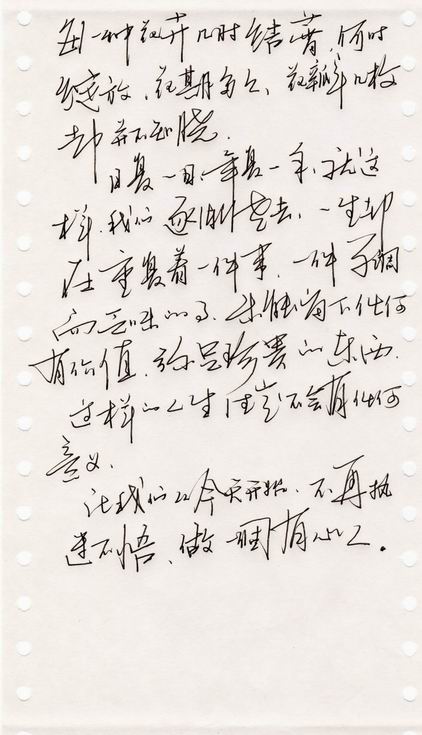 每一种花卉几时结蕾,何时
绽放,花期多久,花瓣几枚
却并不知晓.
日复一日,一年复一年,就这
样,我们逐渐老去,一生却
在重复着一件事,一件单调
而乏味的事.未能留下任何
有价值,称是珍贵的东西.
这样的人生注定不会有任何
意义.
让我们从今天开始,不再执
迷不悟、做一个有心人.